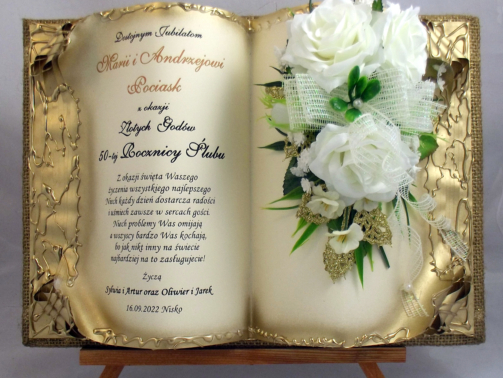 Dostojnym Jubilatom
Marii i Andrzejowi
Pociask
z okazji
Złotych Godów
50-tej Rocznicy Ślubu
Z okazji święta Waszego
życzenia wszystkiego najlepszego
Niech każdy dzień dostarcza radości
i uśmiech zawsze w sercach gości.
Niech problemy Was omijają
a wszyscy bardzo Was kochają,
bo jak nikt inny na świecie
najbardziej na to zasługujecie!
Życzą
Sylwia i Artur oraz Oliwier i Jarek
16.09.2022 Nisko